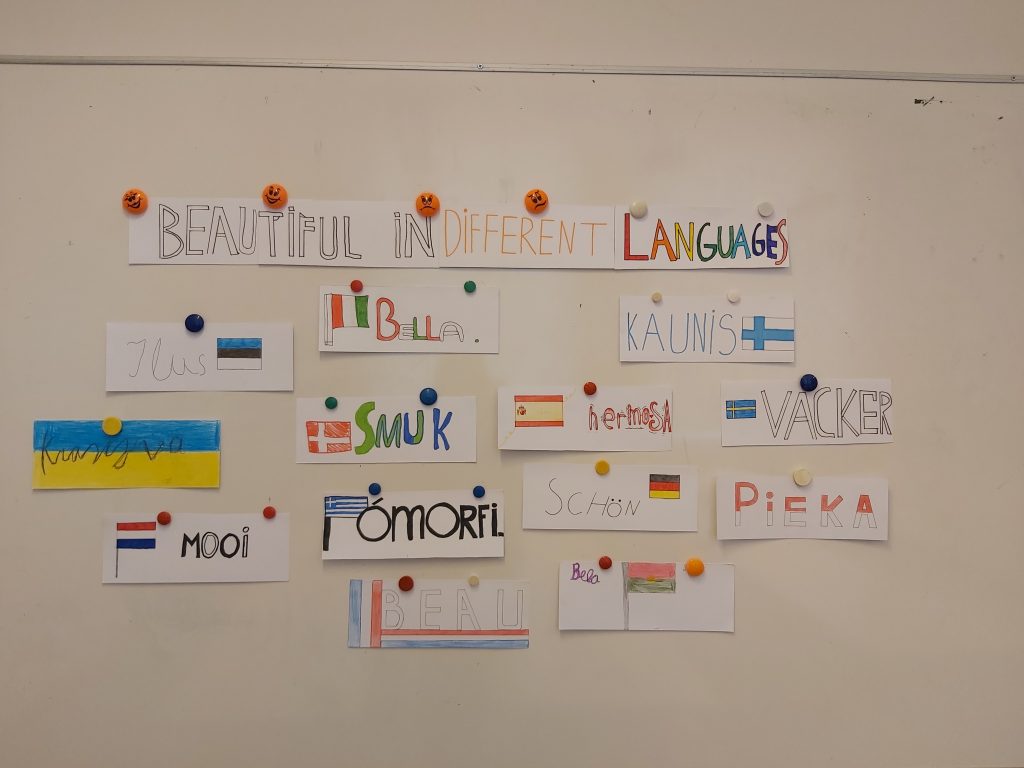 BEAUTIFUL IN DIFFERENT LANGUAGES
BELLA.
KAUNIS
Ilus
SMUK
hermoSA
VACKER
SCHÖN
PIEKA
MOOI
ÓMORFI.
BEAU
Bela